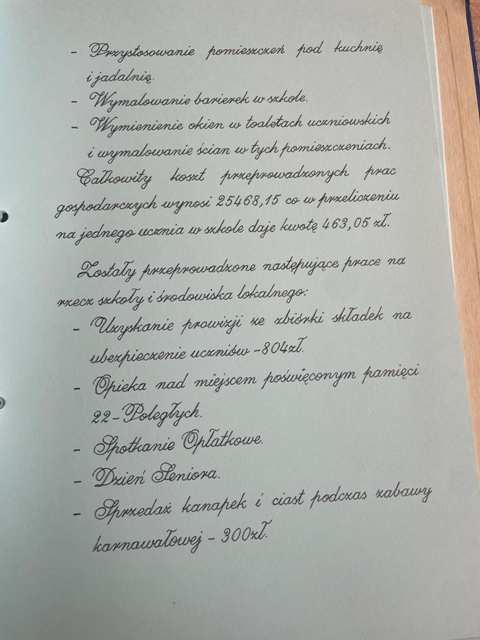 - Przystosowanie pomieszczeń pod kuchnię
i jadalnię.
- Wymalowanie barierek w szkole.
- Wymienienie okien w toaletach uczniowskich
i wymalowanie ścian w tych pomieszczeniach.
Całkowity koszt przeprowadzonych prac
gospodarczych wynosi 25468,15 co w przeliczeniu
na jednego ucznia w szkole daje kwotę 463,05 zł.
Zostały przeprowadzone następujące prace na
rzecz szkoły i środowiska lokalnego:
- Uzyskanie prowizji ze zbiórki składek na
ubezpieczenie uczniów - 804zł.
- Opieka nad miejscem poświęconym pamięci
22 - Poległych.
- Spotkanie Opłatkowe.
- Dzień Seniora.
- Sprzedaż kanapek i ciast podczas zabawy
karnawałowej - 300zł.